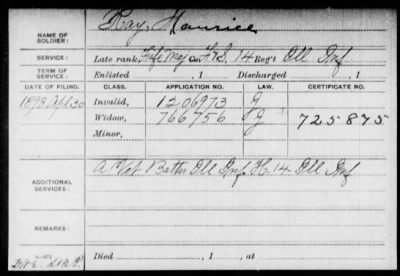 NAME OF SOLDIER: Kay, Maurice
SERVICE: Late rank, Fife Maj Co. F.&S., 14 Reg't Ill Inf
TERM OF SERVICE: Enlisted , 1 Discharged , 1
DATE OF FILING. CLASS. APPLICATION NO. LAW. CERTIFICATE NO.
1898 Apl 30 Invalid, 1206973 J
Widow, 766756 J 725875
Minor,
ADDITIONAL SERVICES: A Vet Battn Ill Inf. H. 14 Ill Inf
REMARKS:
6-071
Died , 1 , at